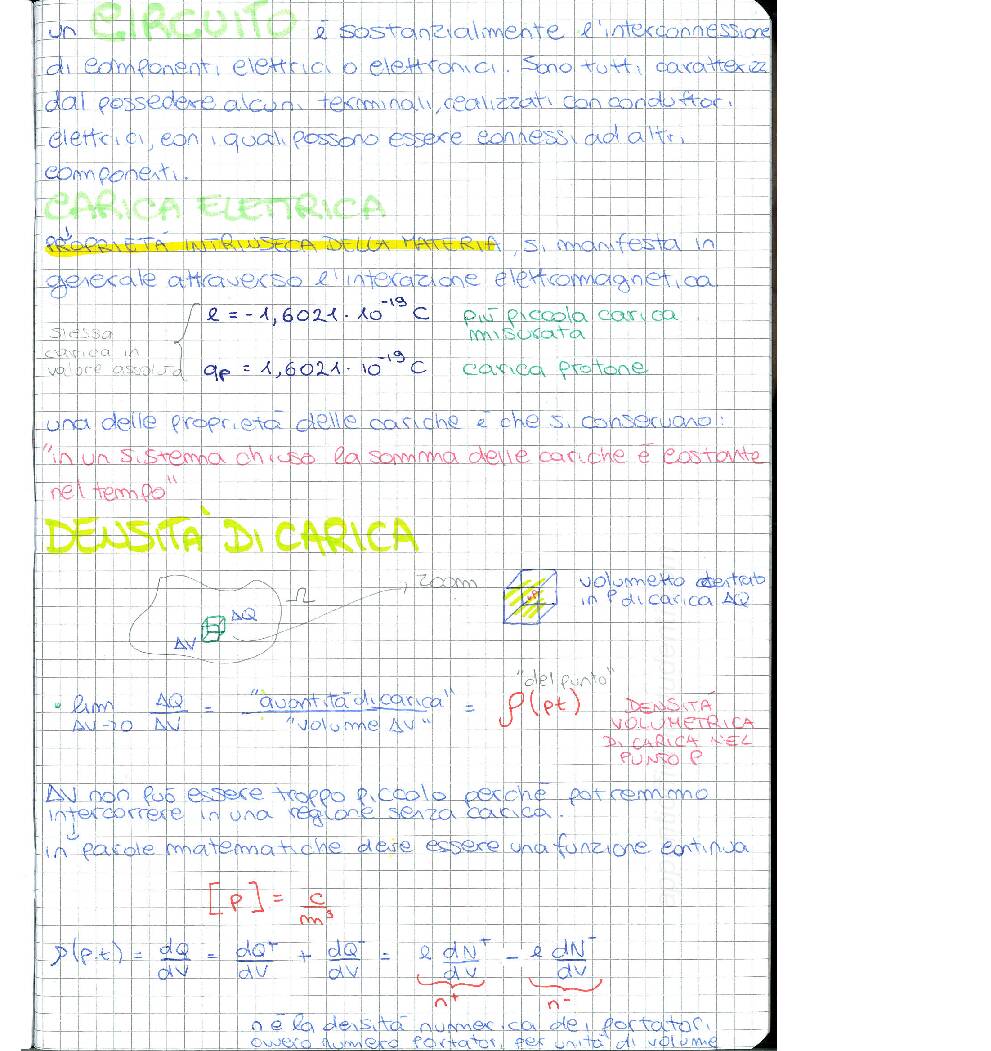 un CIRCUITO è sostanzialmente l'interconnessione
di componenti elettrici o elettronici. Sono tutti caratterizz
dal possedere alcuni terminali, realizzati con conduttori
elettrici, con i quali possono essere connessi ad altri
componenti.
CARICA ELETTRICA
PROPRIETÀ INTRINSECA DELLA MATERIA, si manifesta in
generale attraverso l'interazione elettromagnetica
stessa carica in valore assoluto
e = -1,6021 · 10⁻¹⁹ C più piccola carica misurata
qp = 1,6021 · 10⁻¹⁹ C carica protone
una delle proprietà delle cariche è che si conservano:
"in un sistema chiuso la somma delle cariche è costante
nel tempo"
DENSITÀ DI CARICA
Ω zoom
ΔQ
ΔV
P
volumetto centrato
in P di carica ΔQ
"del punto"
• lim ΔV→0 ΔQ/ΔV = "quantità di carica"/"volume ΔV" = ρ(p,t)
DENSITÀ
VOLUMETRICA
DI CARICA NEL
PUNTO P
ΔV non può essere troppo piccolo perché potremmo
intercorrere in una regione senza carica.
↓
in parole matematiche deve essere una funzione continua
[ρ] = C/m³
ρ(p,t) = dQ/dV = dQ⁺/dV + dQ⁻/dV = e dN⁺/dV - e dN⁻/dV
n⁺ n⁻
n è la densità numerica dei portatori,
ovvero numero portatori per unità di volume